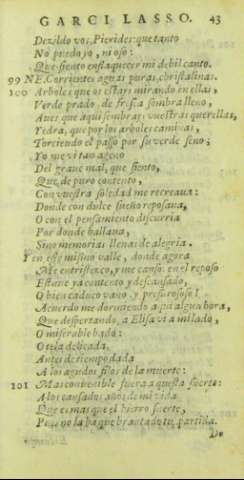 GARCI LASSO. 43
Dezildo vos, Pierides: que tanto
No puedo yo, ni oso:
Que siento enflaquecer mi debil canto.
99 NE. Corrientes aguas puras, christalinas.
100 Arboles que os estays mirando en ellas,
Verde prado, de fresca sombra lleno,
Aues que aqui sembrays vuestras querellas,
Yedra, que por los arboles caminas,
Torciendo el passo por su verde seno;
Yo me vi tan ageno
Del graue mal, que siento,
Que, de puro contento,
Con vuestra soledad me recreaua:
Donde con dulce sueño reposaua,
O con el pensamiento discurria
Por donde hallaua,
Sino memorias llenas de alegria.
Y en este mismo valle, donde agora
Me entristezco, y me canso: en el reposo
Estuue ya contento, y descansado,
O bien caduco vano, y pressuroso!
Acuerdo me durmiendo aqui algun hora,
Que despertando, a Elisa vi a mi lado,
O miserable hado:
O tela delicada,
Antes de tiempo dada
A los agudos filos de la muerte:
101 Mas conuenible fuera aquesta suerte:
A los cansados años de mi vida
Que es mas que el hierro fuerte,
Pues no la ha quebrantado tu partida.
Do